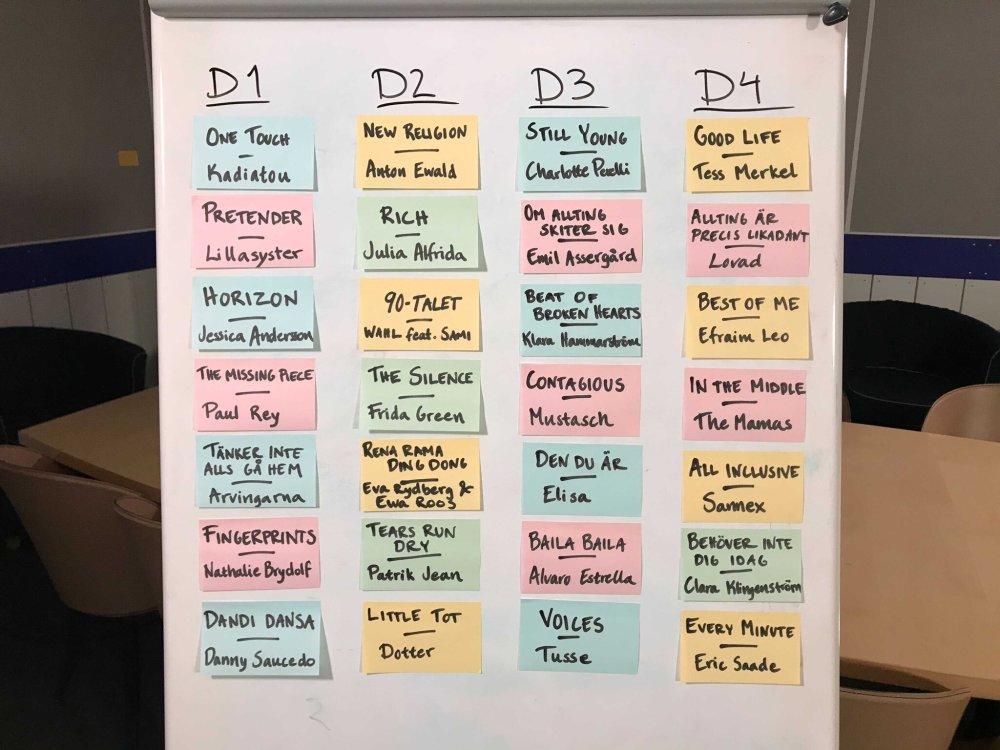 D1
ONE TOUCH
Kadiatou
PRETENDER
Lillasyster
HORIZON
Jessica Andersson
THE MISSING PIECE
Paul Rey
TÄNKER INTE
ALLS GÅ HEM
Arvingarna
FINGERPRINTS
Nathalie Brydolf
DANDI DANSA
Danny Saucedo
D2
NEW RELIGION
Anton Ewald
RICH
Julia Alfrida
90-TALET
WAHL feat. SAMI
THE SILENCE
Frida Green
RENA RAMA
DING DONG
Eva Rydberg &
Ewa Roos
TEARS RUN
DRY
Patrik Jean
LITTLE TOT
Dotter
D3
STILL YOUNG
Charlotte Perelli
OM ALLTING
SKITER SIG
Emil Assergård
BEAT OF
BROKEN HEARTS
Klara Hammarström
CONTAGIOUS
Mustasch
DEN DU ÄR
Elisa
BAILA BAILA
Alvaro Estrella
VOICES
Tusse
D4
GOOD LIFE
Tess Merkel
ALLTING ÄR
PRECIS LIKADANT
Lovad
BEST OF ME
Efraim Leo
IN THE MIDDLE
The Mamas
ALL INCLUSIVE
Sannex
BEHÖVER INTE
DIG IDAG
Clara Klingenström
EVERY MINUTE
Eric Saade